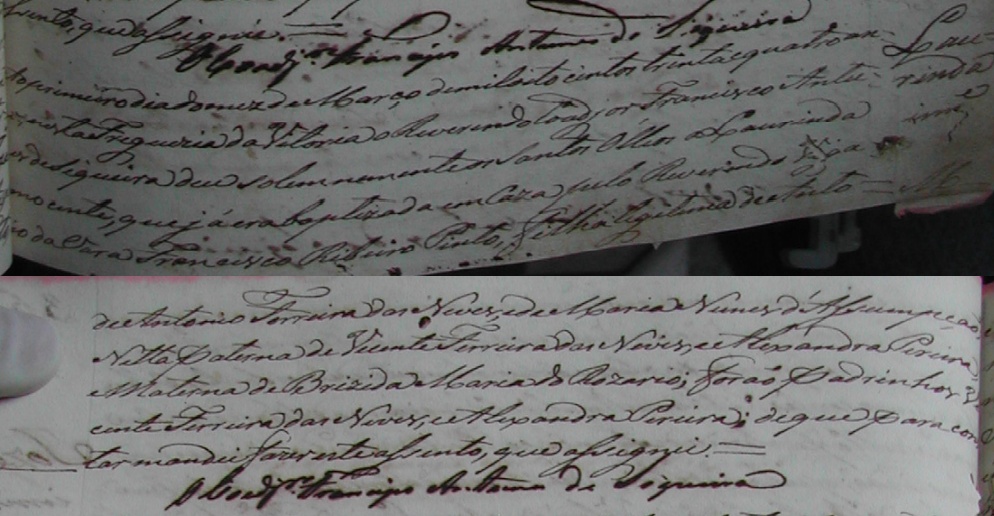 sento, que assignei. =
O Coadj.or Francisco Antunes de Siqueira
primeiro dia do mez de Março de mil oito centos trinta e quatro an-
Lau-
nesta Freguezia da Vitoria o Reverendo Coadjor Francisco Antu-
rinda
nes de Siqueira deu solemnemente os Santos Olleos a Laurinda
inn.e
innocente, que já era baptizada em Caza pelo Reverendo Viga-
rio da Vara Francisco Ribeiro Pinto, Filha legitima
de Antonio Ferreira das Neves, e de Maria Nunes d'Assumpção
Netta Paterna de Vicente Ferreira das Neves, e Alexandra Pereira,
e Materna de Brizida Maria do Rozario; forão Padrinhos Vi-
cente Ferreira das Neves, e Alexandra Pereira; de que para cons-
tar mandei fazer este assento, que assignei. =
O Coadj.or Francisco Antunes de Siqueira